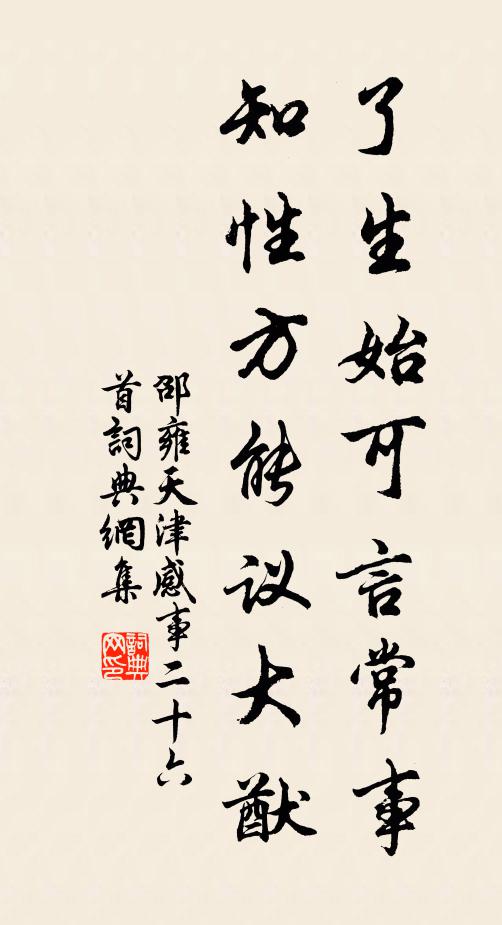 了生始可言常事
知性方能议大猷
邵雍天津感事二十六
首词典網集
詞典网印